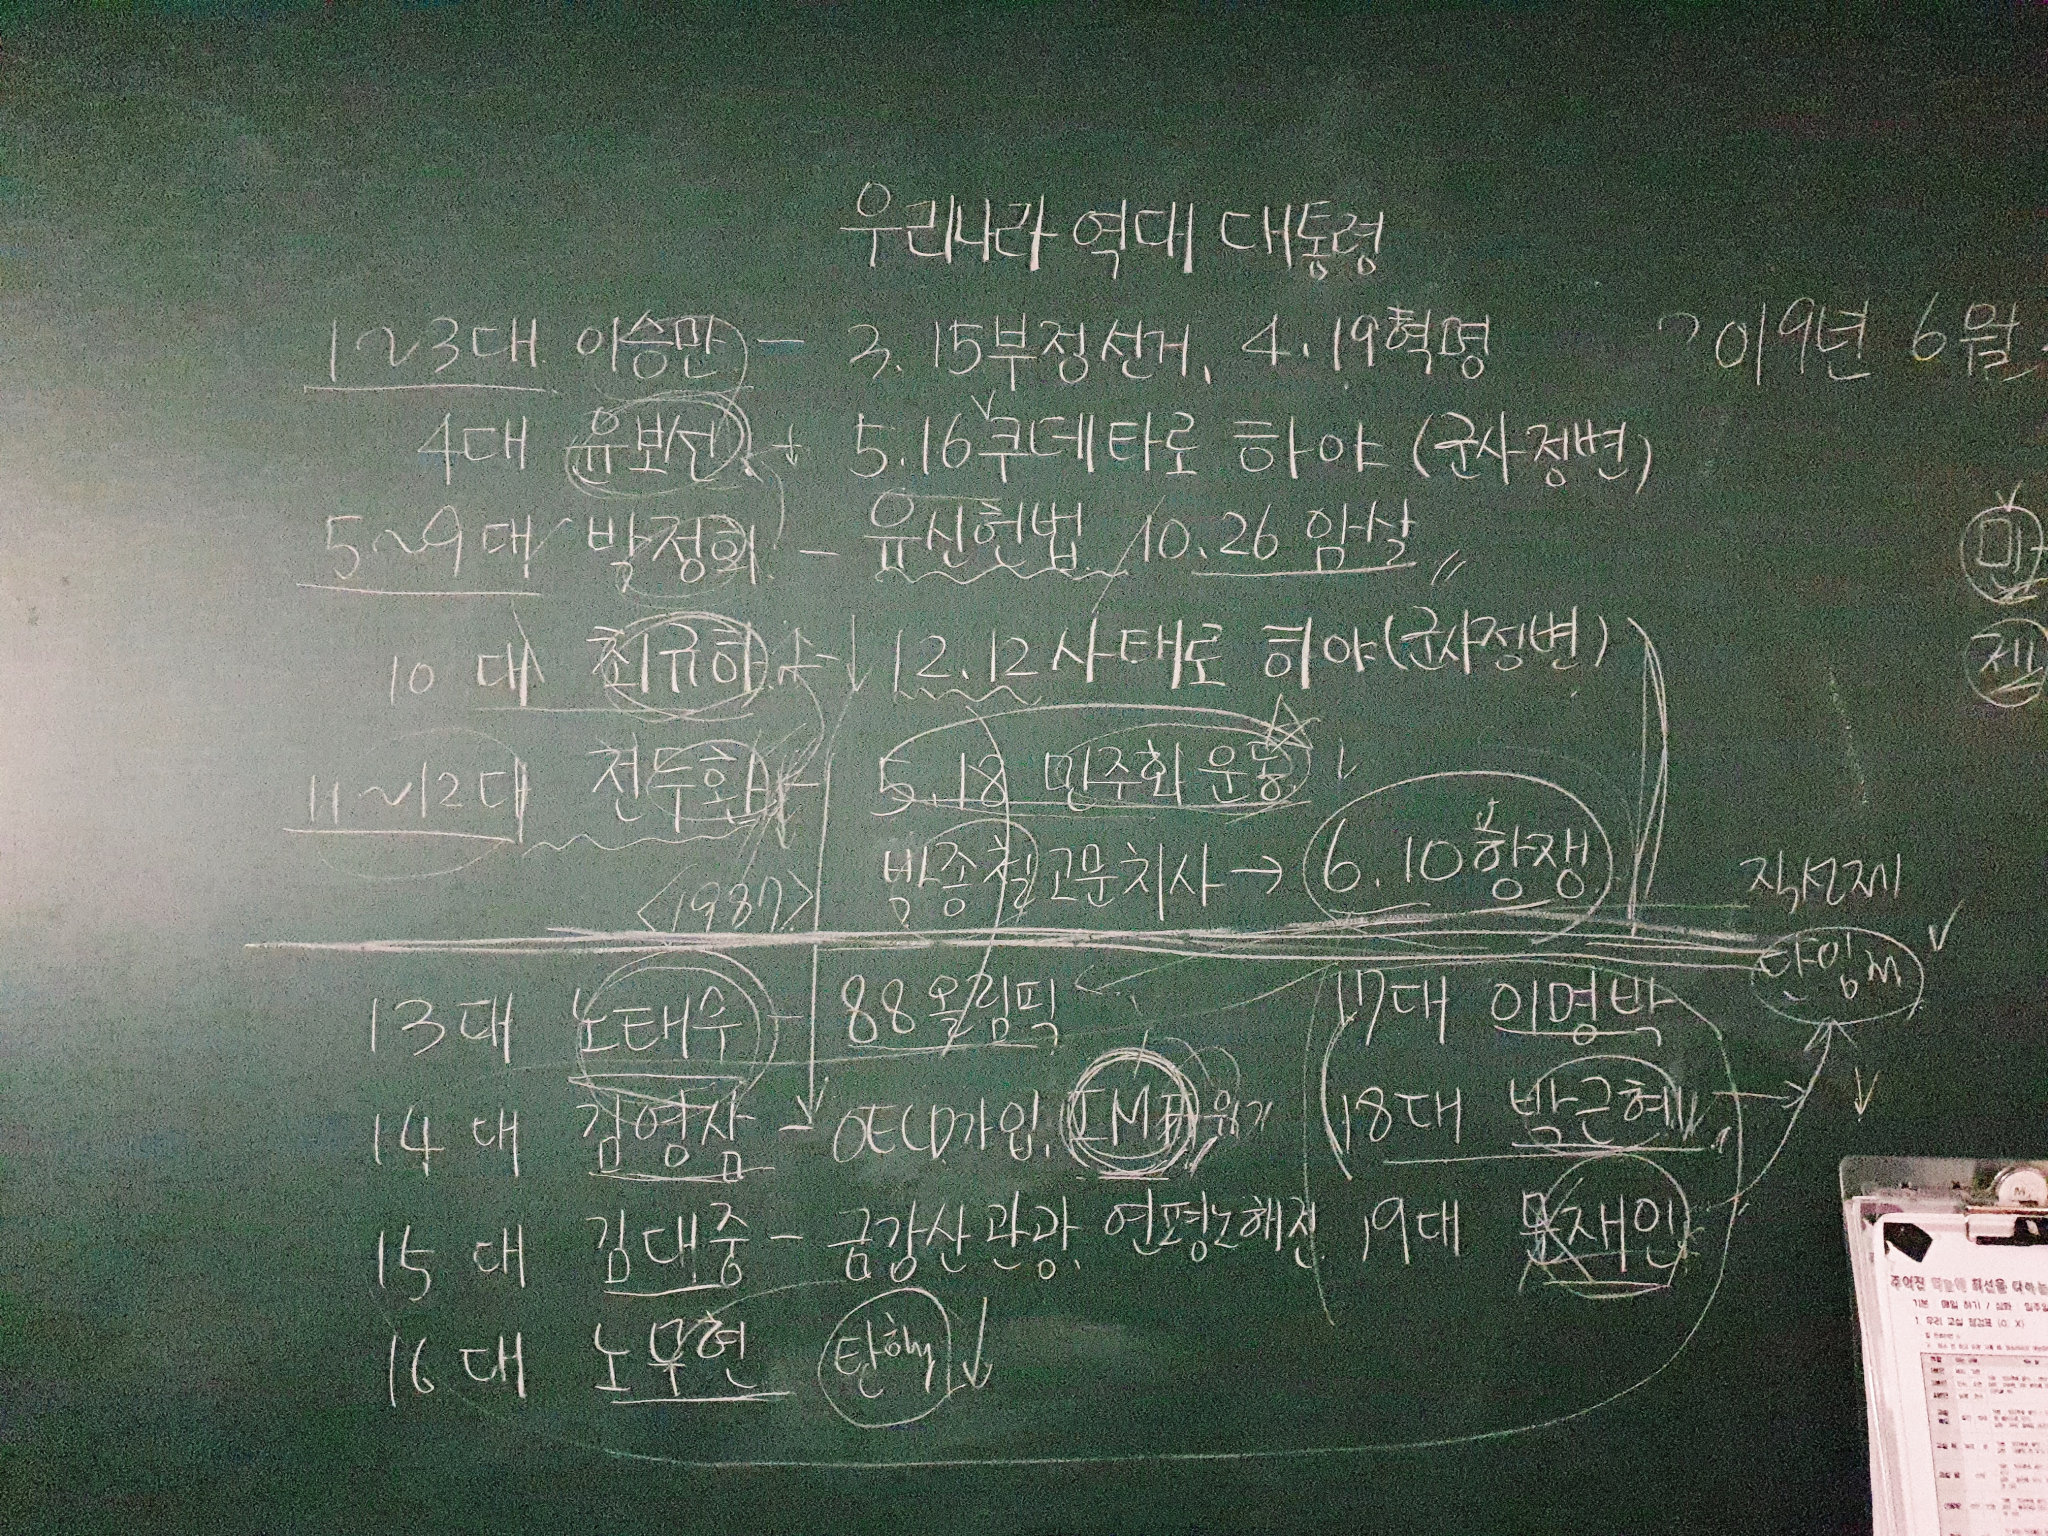 우리나라 역대 대통령
1~3대 이승만 - 3.15부정선거, 4.19혁명
2019년 6월
4대 윤보선 - 5.16쿠데타로 하야 (군사정변)
5~9대 박정희 - 유신헌법 10.26 암살
민
10대 최규하 - 12.12사태로 하야(군사정변)
11~12대 전두환 - 5.18 민주화 운동
박종철고문치사 → 6.10항쟁
<1987>
직선제
단임제
13대 노태우 - 88올림픽
17대 이명박
14대 김영삼 - OECD가입, IMF위기
18대 박근혜
15대 김대중 - 금강산관광, 연평도해전
19대 문재인
16대 노무현 탄핵
1. 우리 교실 점검표 (O, X)